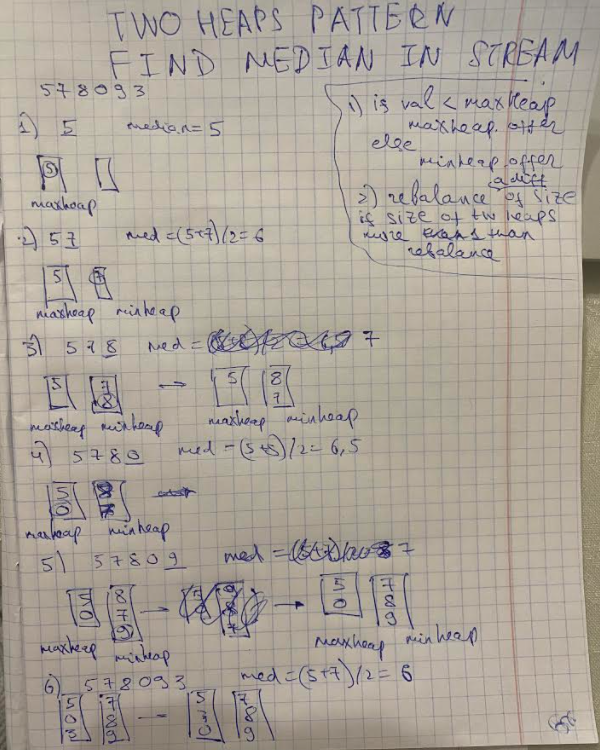 TWO HEAPS PATTERN
FIND MEDIAN IN STREAM
578093
1) is val < maxHeap
maxheap.offer
else
minheap.offer
a diff
2) rebalance of size
is size of tw heaps
more than
rebalance
1) 5 median = 5
5
maxheap
2) 57 med = (5+7)/2 = 6
5 7
maxheap minheap
3) 578 med = 7
5 7 → 5 8
8 7
maxheap minheap maxheap minheap
4) 5780 med = (5+8)/2 = 6,5
5
0
maxheap minheap
5) 57809 med = 7
5 8 → → 5 7
0 7 0 8
9 9
maxheap minheap maxheap minheap
6) 578093 med = (5+7)/2 = 6
5 7 — 5 7
0 8 3 8
3 9 0 9